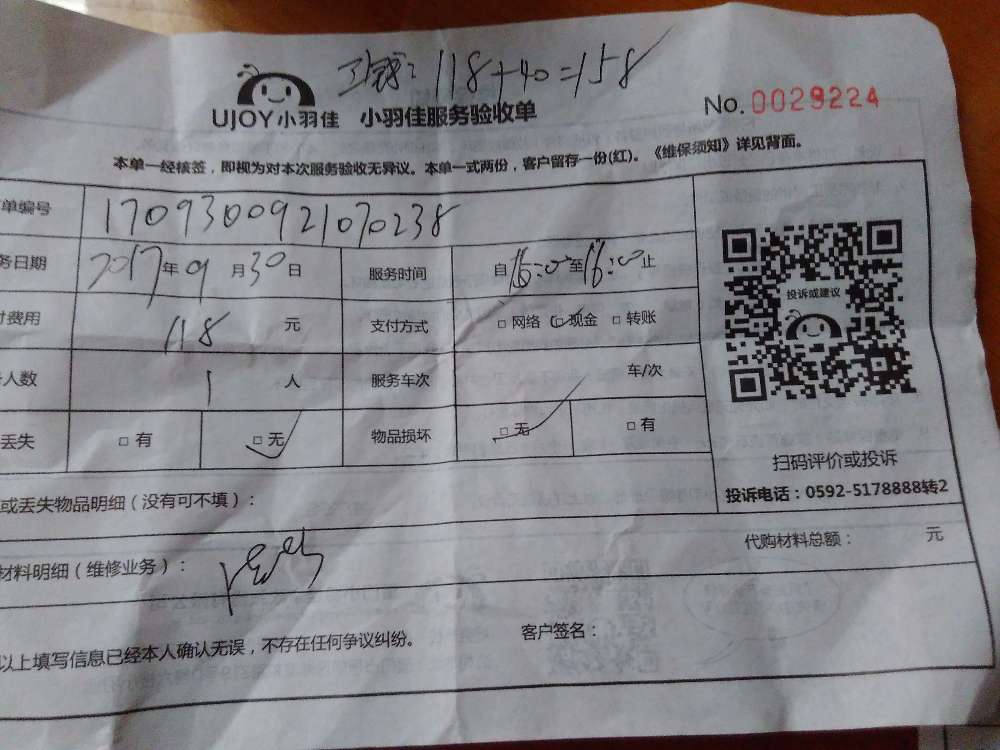 工钱：118+40=158
UJOY小羽佳 小羽佳服务验收单 No. 0029224
本单一经核签，即视为对本次服务验收无异议。本单一式两份，客户留存一份(红)。《维保须知》详见背面。
单编号 1709300921070238
务日期 2017年09月30日 服务时间 自15:00至16:00止
费用 118元 支付方式 □网络 □现金 □转账
人数 1人 服务车次 车/次
丢失 □有 □无 物品损坏 □无 □有
投诉或建议
扫码评价或投诉
投诉电话：0592-5178888转2
或丢失物品明细（没有可不填）：
材料明细（维修业务）： 代购材料总额： 元
以上填写信息已经本人确认无误，不存在任何争议纠纷。 客户签名：